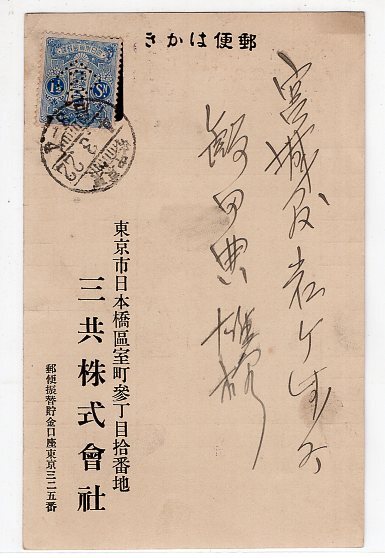 郵便はかき
宮城県岩ケ崎
飯田典雄様
東京市日本橋區室町參丁目拾番地
三共株式會社
郵便振替貯金口座東京三二五番
1½ Sn